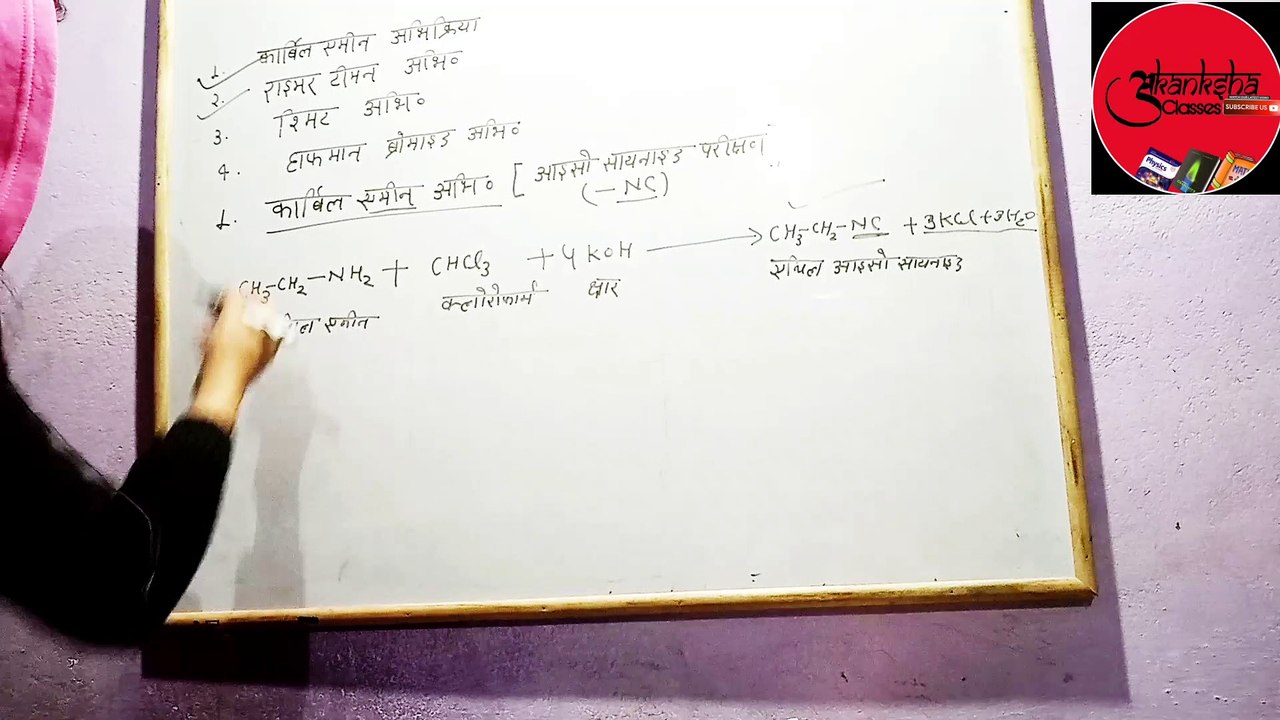 1. कार्बिल एमीन अभिक्रिया
2. राइमर टीमन अभि०
3. श्मिट अभि०
4. हाफमान ब्रोमाइड अभि०
1. कार्बिल एमीन अभि० [ आइसो सायनाइड परीक्षण
(-NC)
CH3-CH2-NH2 + CHCl3 + 4KOH → CH3-CH2-NC + 3KCl+3H2O
एमीन क्लोरोफार्म क्षार एथिल आइसो सायनाइड
Akanksha
Classes
SUBSCRIBE US
Physics